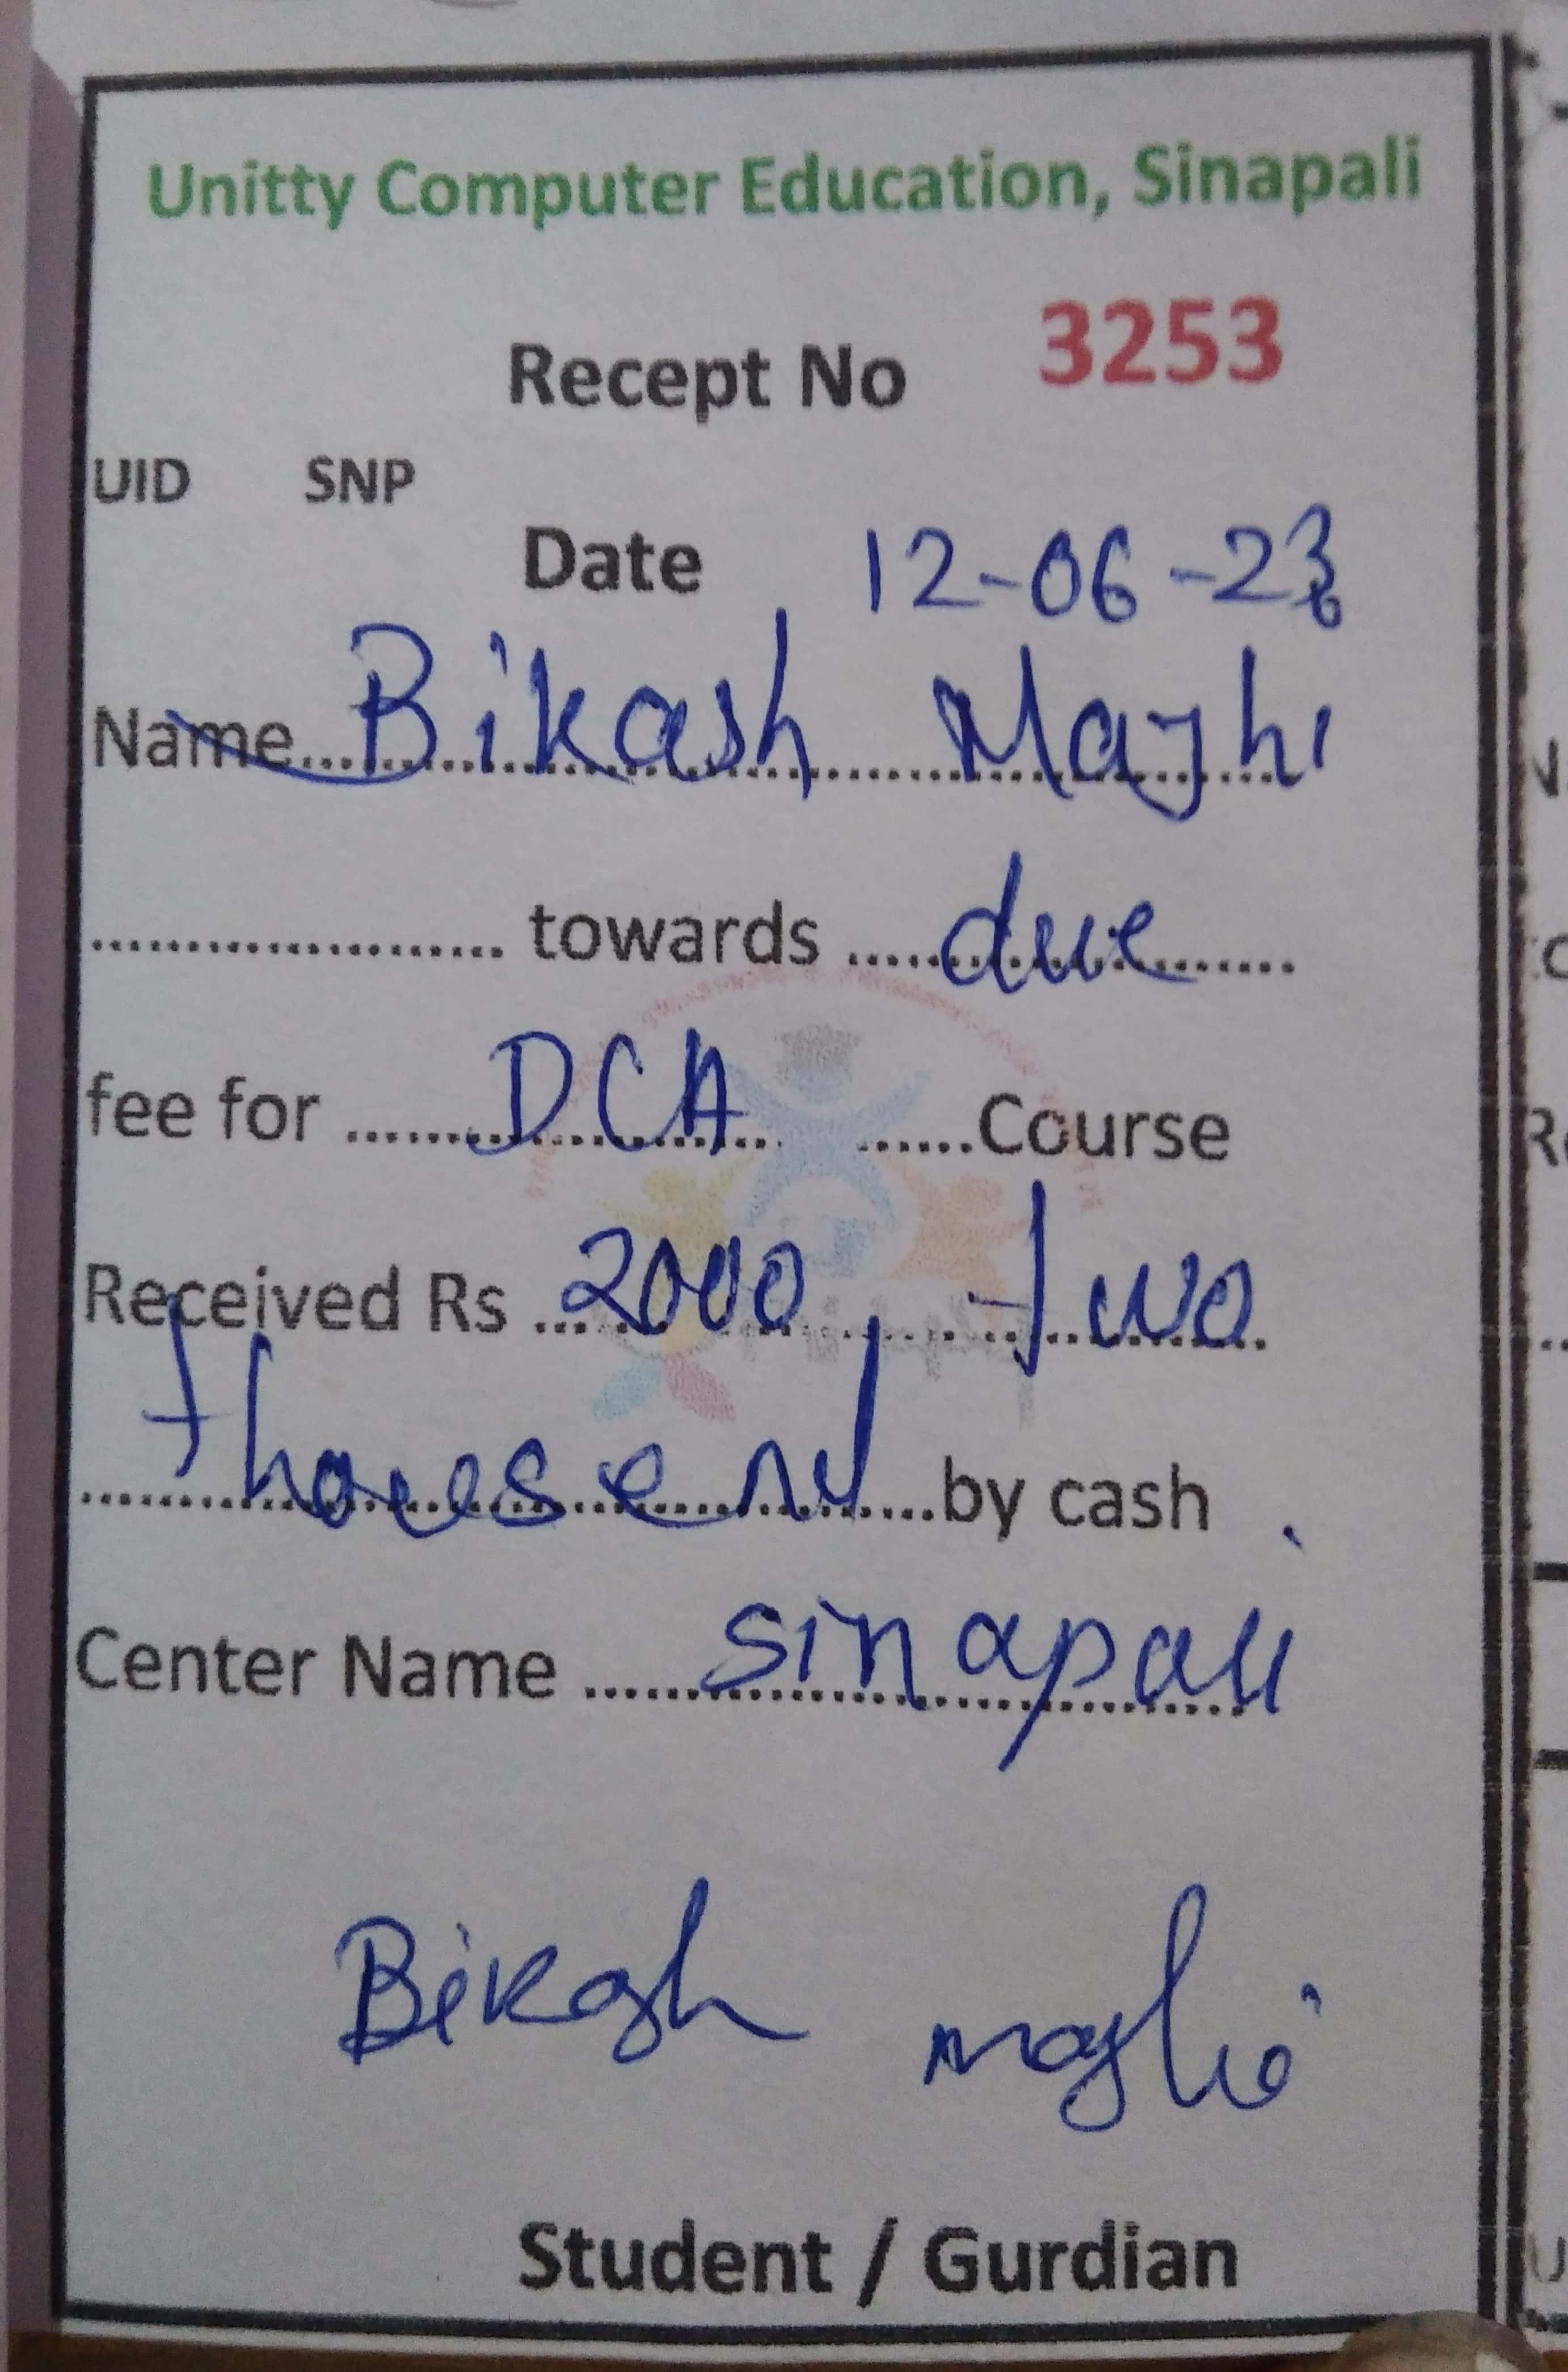 Unitty Computer Education, Sinapali
Recept No 3253
UID SNP
Date 12-06-23
Name Bikash Majhi
towards due
fee for DCA Course
Received Rs 2000, two
thousend by cash
Center Name sinapali
Bikash majhi
Student / Gurdian